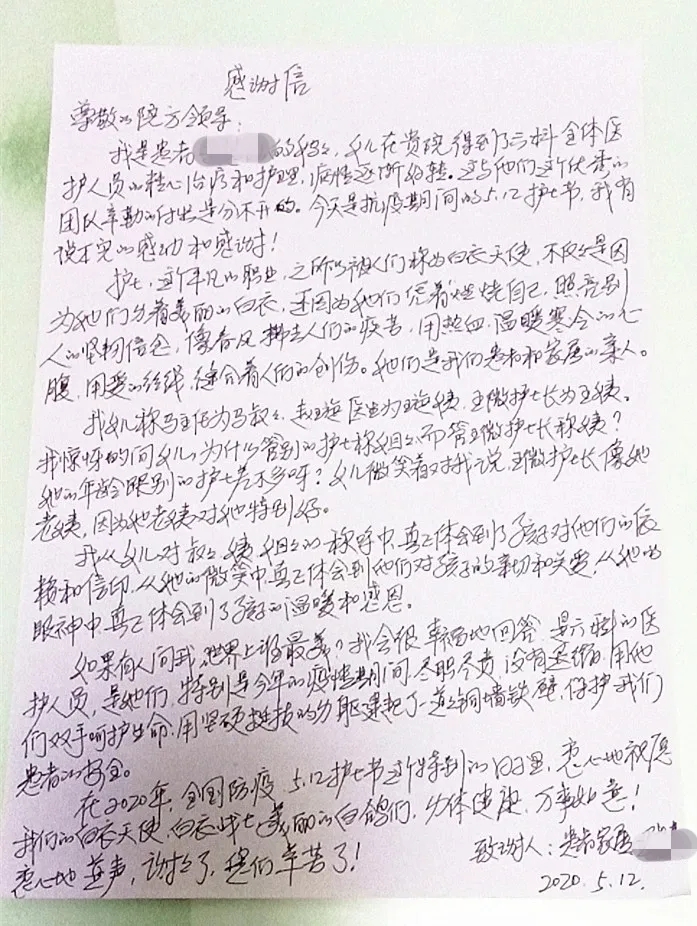 感谢信
尊敬的院方领导：
我是患者的妈妈，女儿在贵院得到了六科全体医
护人员的精心治疗和护理，病情逐渐好转。这与他们这个优秀的
团队辛勤的付出是分不开的。今天是抗疫期间的5.12护士节，我有
说不完的感动和感谢！
护士，这个平凡的职业，之所以被人们称为白衣天使，不仅仅是因
为她们穿着美丽的白衣，还因为她们凭着燃烧自己，照亮别
人的坚韧信念，像春风拂去人们的疾苦，用热血温暖寒冷的心
腹，用爱的丝线，缝合着人们的创伤。她们是我们患者和家属的亲人。
我女儿称马主任为马叔叔，赵海医生为海姨，王微护士长为王姨。
我惊讶的问女儿，为什么管别的护士称姐姐，而管王微护士长称姨？
她的年龄跟别的护士差不多呀？女儿微笑着对我说，王微护士长像她
老姨，因为她老姨对她特别好。
我从女儿对叔叔、姨、姐姐的称呼中，真正体会到了孩子对他们的信
赖和信仰，从她的微笑中，真正体会到他们对孩子的亲切和关爱，从她的
眼神中，真正体会到了孩子的温暖和感恩。
如果有人问我，世界上谁最美？我会很幸福地回答，是六科的医
护人员，是她们，特别是今年的疫情期间，尽职尽责，没有退缩，用他
们双手呵护生命，用坚硬挺拔的身躯筑起了一道道铜墙铁壁，保护我们
患者的安全。
在2020年，全国防疫，5.12护士节这个特别的日子里，衷心地祝愿
我们的白衣天使，白衣战士，美丽的白鸽们，身体健康，万事如意！
衷心地道声，谢谢了，您们辛苦了！
致谢人：患者家属
2020.5.12.